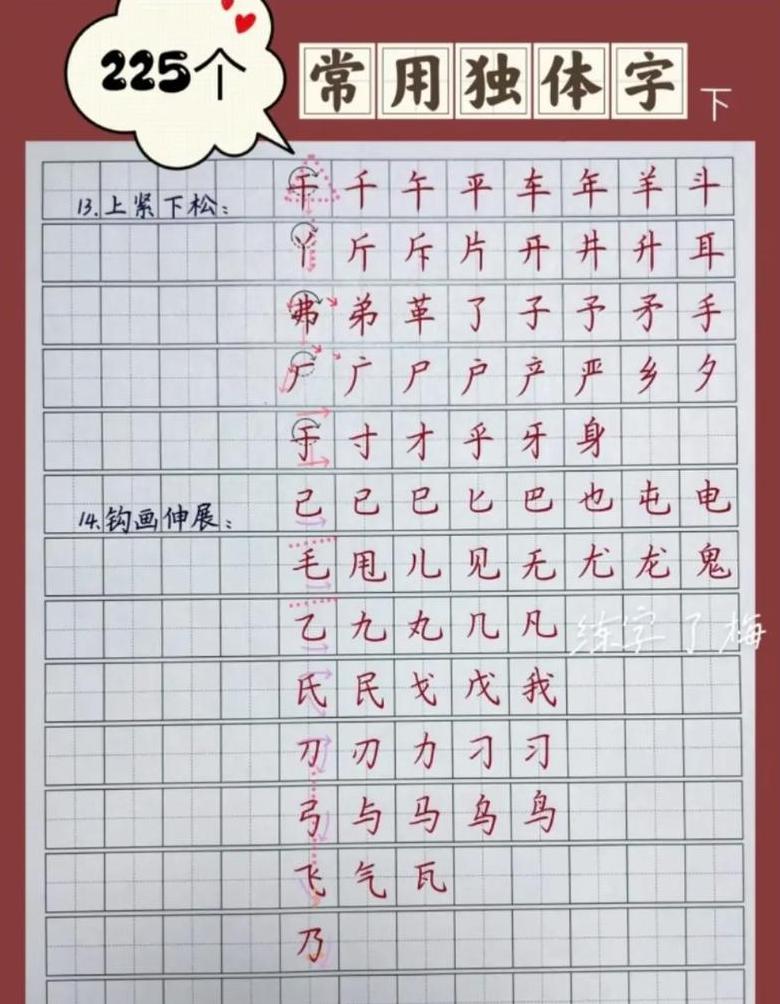 225个
常用独体字
下
13.上紧下松: 干千午平车年羊斗
丫斤斥片开井升耳
弗弟革了子予矛手
厂广尸户产严乡夕
于寸才乎牙身
14.钩画伸展: 己已巳匕巴也屯电
毛甩儿见无尤龙鬼
乙九丸几凡
练字了梅
氏民戈戊我
刀刃力刁习
弓与马乌鸟
飞气瓦
乃